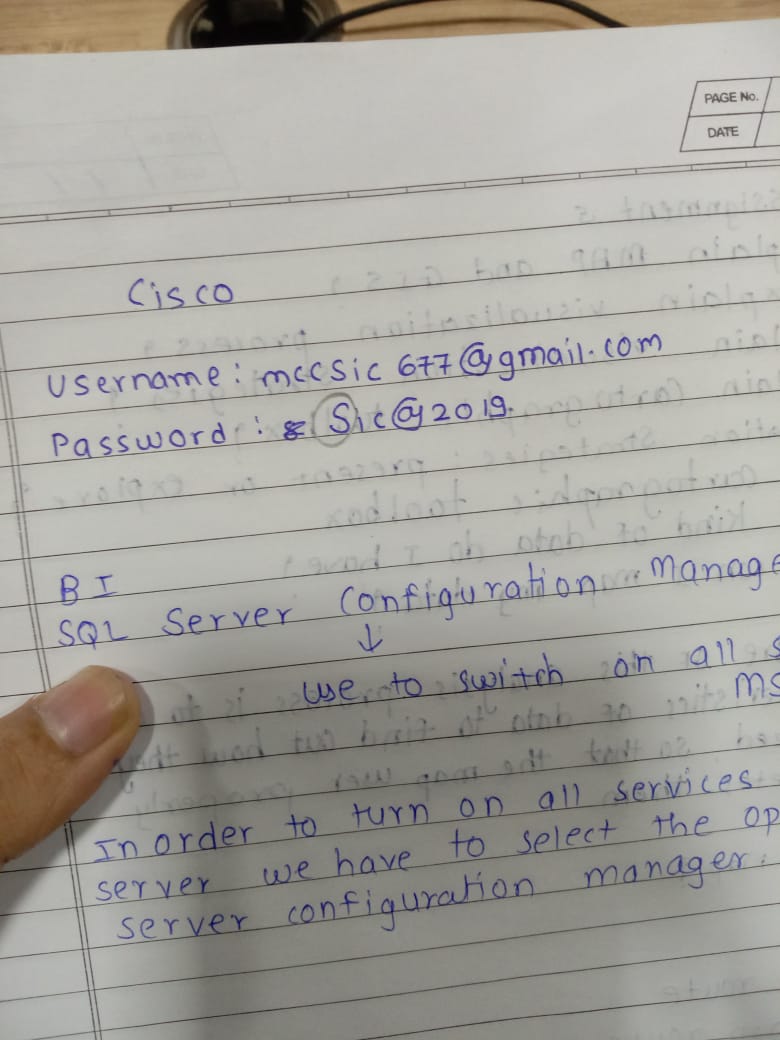 PAGE No.
DATE
Cisco
Username: mccsic677@gmail.com
Password: Sic@2019.
BI
SQL Server Configuration Manage
↓
use to switch on all s
MS
In order to turn on all services
server we have to select the op
server configuration manager.